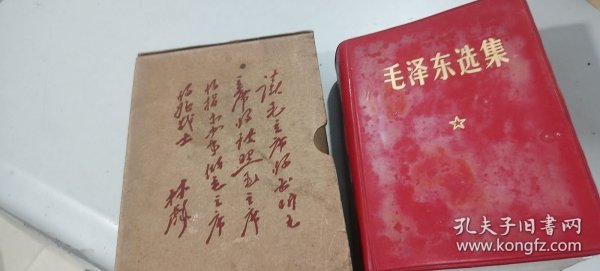 读毛主席的书听毛
主席的话照毛主席
的指示办事做毛主席
的好战士
林彪
毛泽东选集
孔夫子旧书网
www.kongfz.com